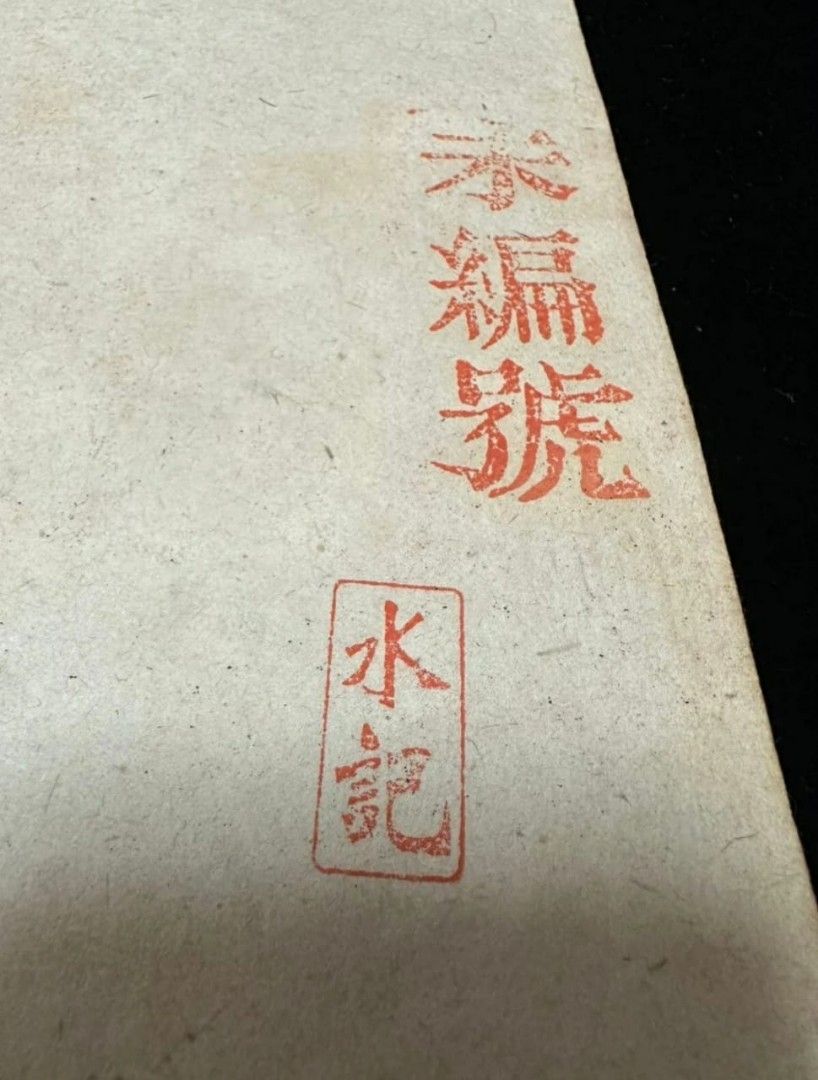 未編號
水記